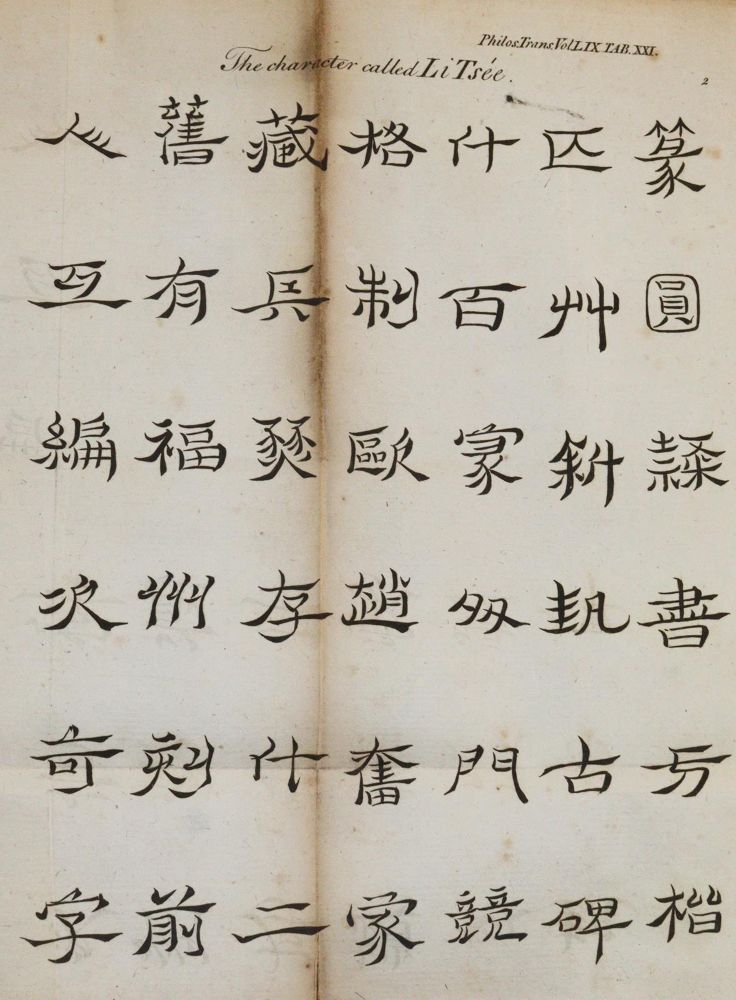 The character called Li Tsée.
Philos. Trans. Vol. LIX TAB. XXI.
2
篆圓隸書方楷
匹艸執古碑
什百家門競
格制歐趙奮家
藏兵燹存什二
舊有福州刻前
人互編次奇字